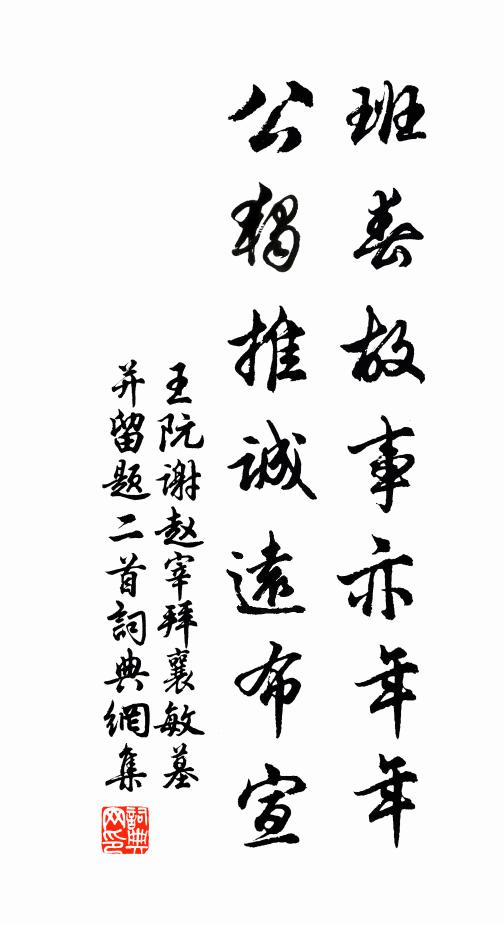 班春故事亦年年
公独推誠遠布宣
王阮谢赵宰拜襄敏墓
并留题二首詞典網集
詞典网印